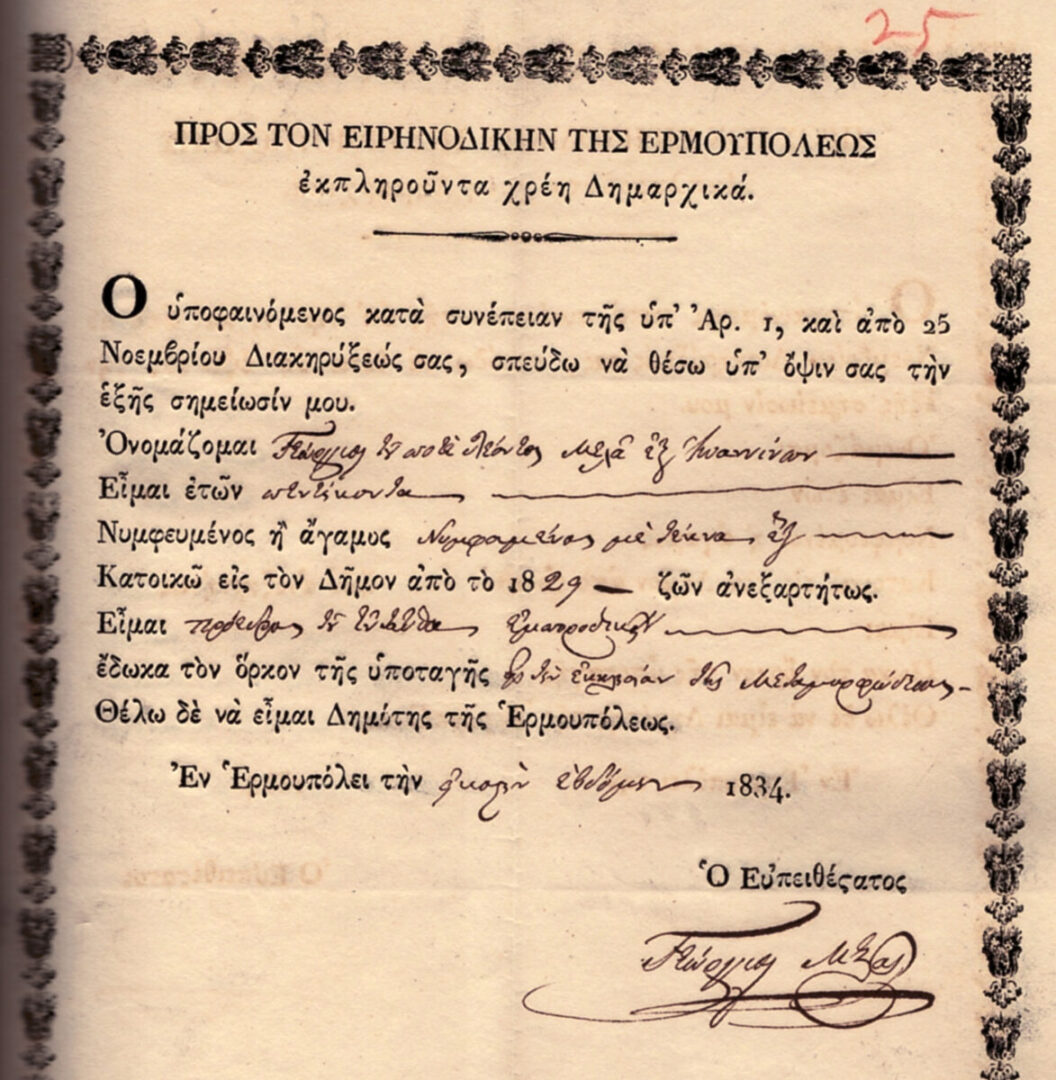 25
ΠΡΟΣ ΤΟΝ ΕΙΡΗΝΟΔΙΚΗΝ ΤΗΣ ΕΡΜΟΥΠΟΛΕΩΣ
ἐκπληροῦντα χρέη Δημαρχικά.
Ο ὑποφαινόμενος κατὰ συνέπειαν τῆς ὑπ' Ἀρ. 1, καὶ ἀπὸ 25
Νοεμβρίου Διακηρύξεώς σας, σπεύδω νὰ θέσω ὑπ' ὄψιν σας τὴν
ἑξῆς σημείωσίν μου.
Ὀνομάζομαι Γεώργιος τοῦ ποτὲ Λεόντος Μελᾶ ἐξ Ἰωαννίνων
Εἶμαι ἐτῶν πεντήκοντα
Νυμφευμένος ἢ ἄγαμος Νυμφευμένος μὲ τέκνα ἓξ
Κατοικῶ εἰς τὸν Δῆμον ἀπὸ τὸ 1829 ζῶν ἀνεξαρτήτως.
Εἶμαι πρόεδρος τοῦ ἐνταῦθα Ἐμποροδικείου
ἔδωκα τὸν ὅρκον τῆς ὑποταγῆς εἰς τὴν ἐκκλησίαν τῆς Μεταμορφώσεως
Θέλω δὲ νὰ εἶμαι Δημότης τῆς Ἑρμουπόλεως.
Ἐν Ἑρμουπόλει τὴν εἰκοστὴν ἑβδόμην 1834.
Ὁ Εὐπειθέϛατος
Γεώργιος Μελᾶς